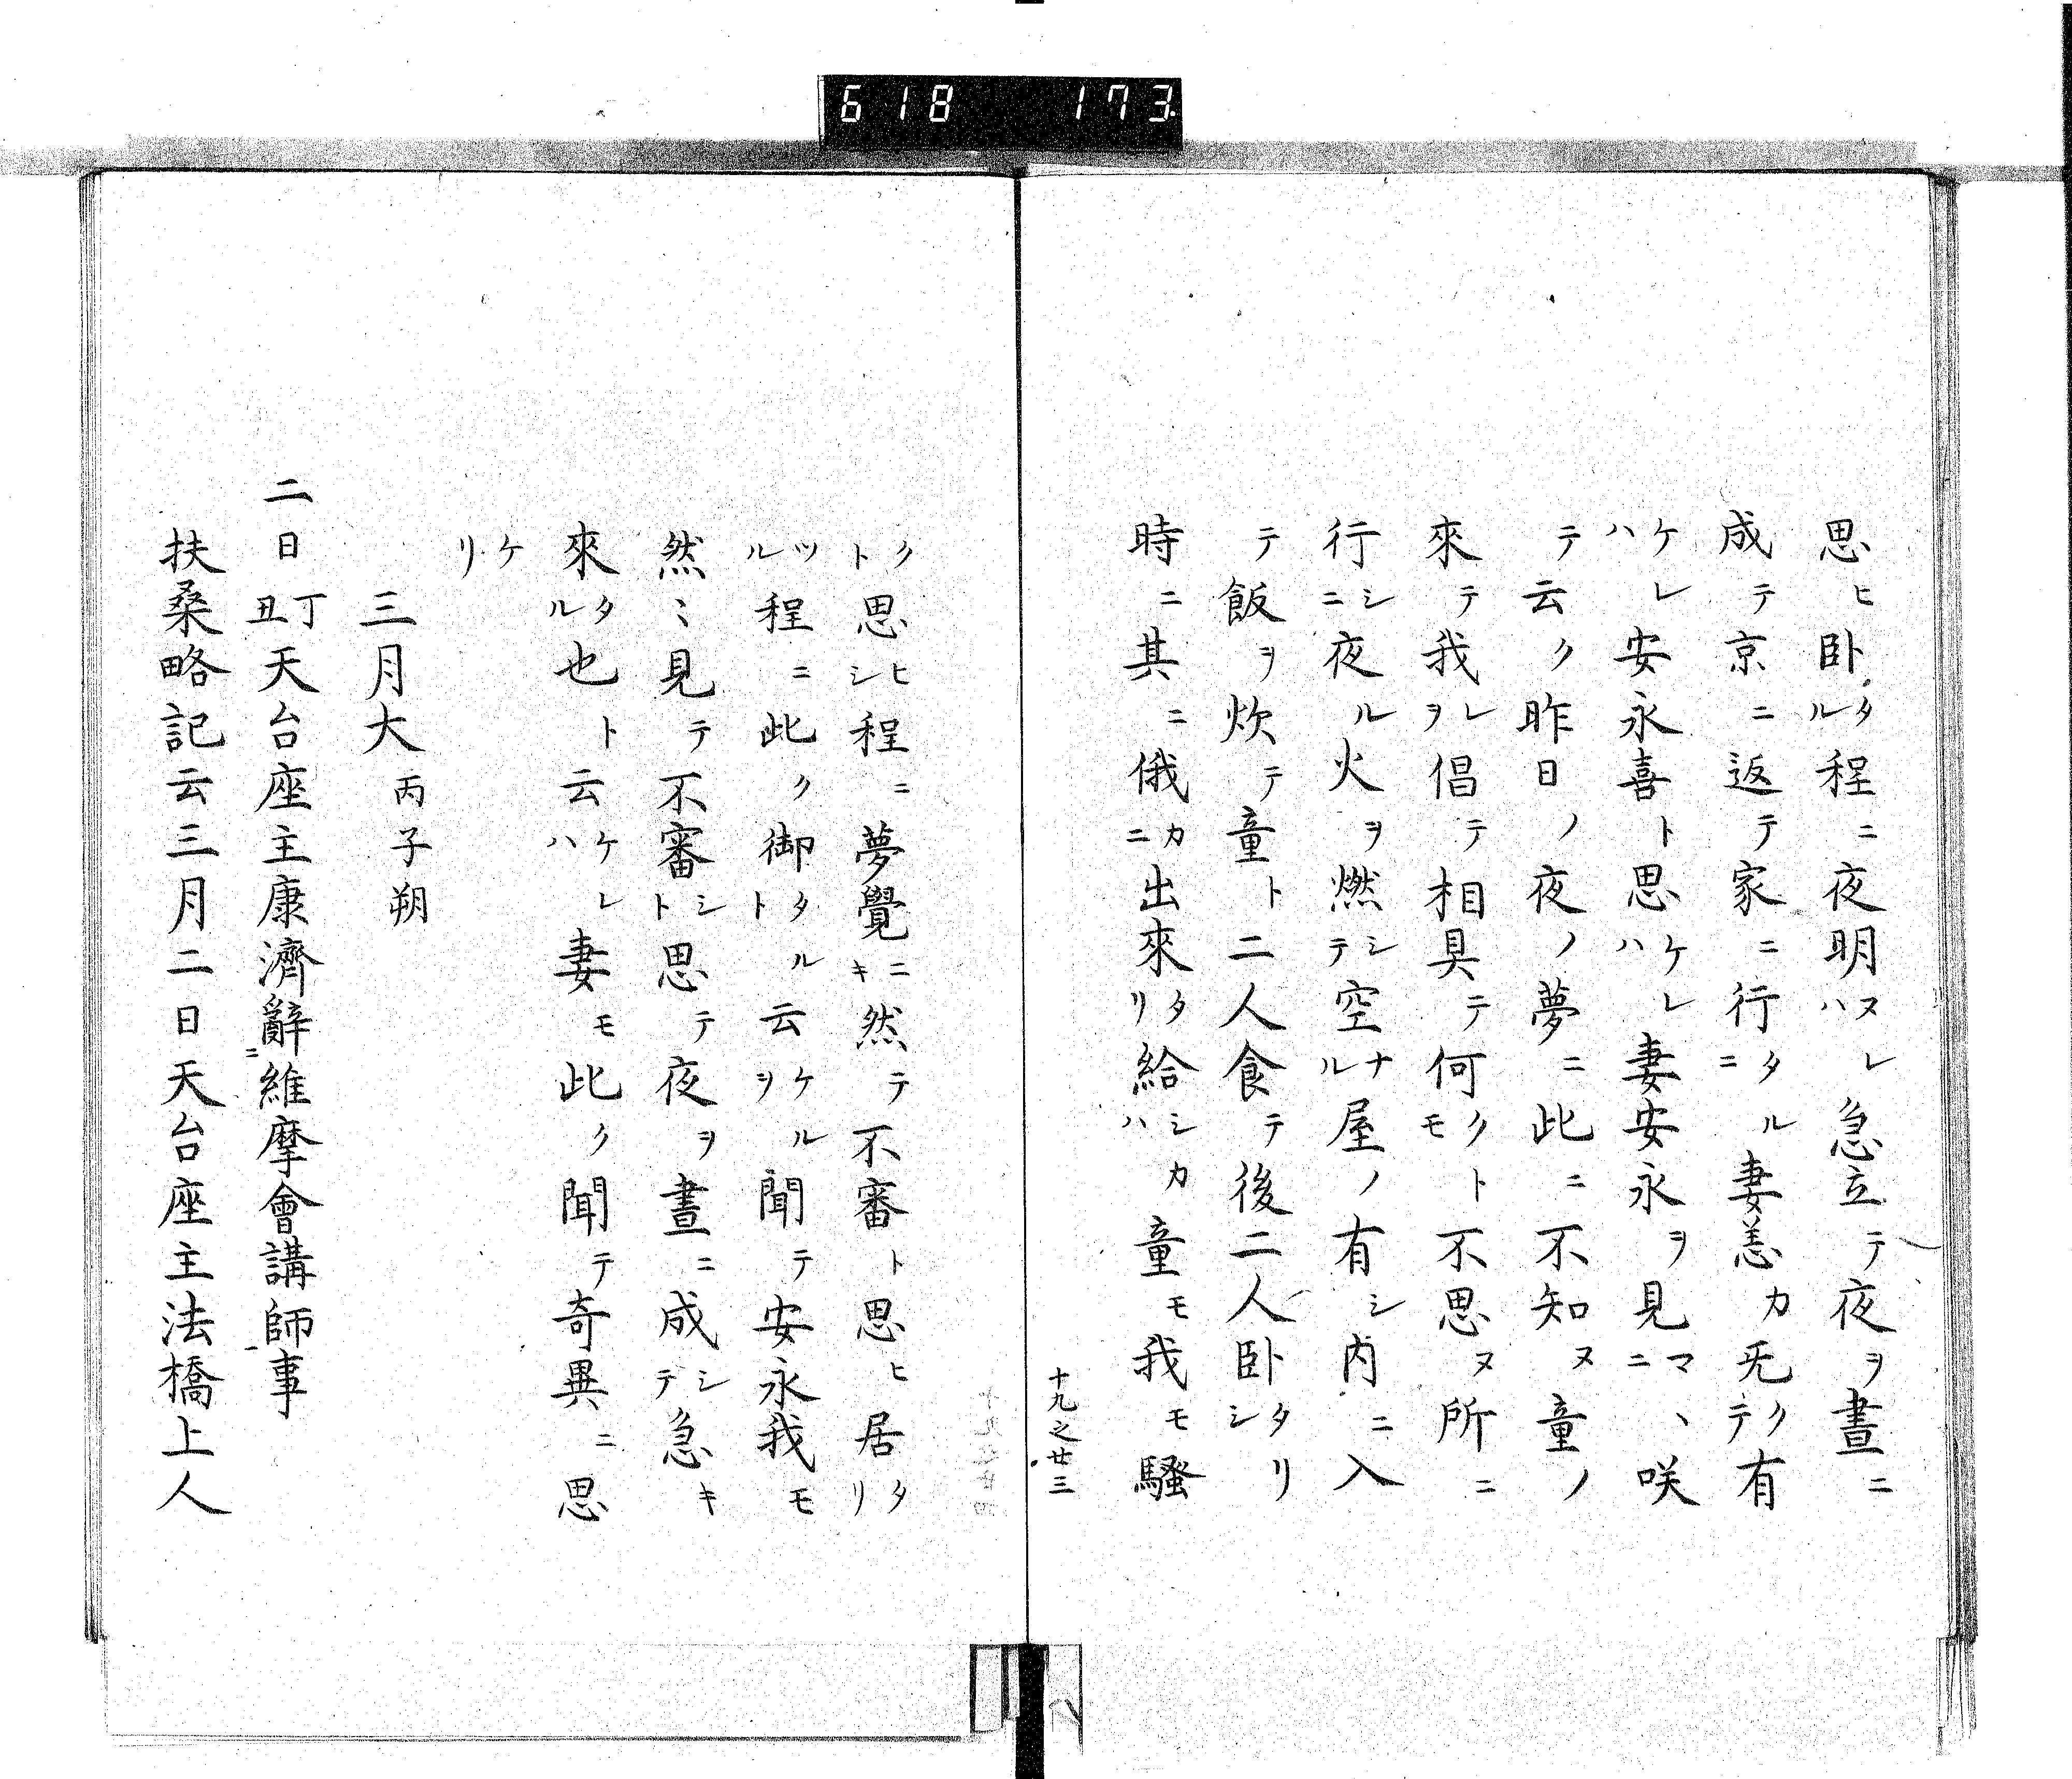 618 173
思ヒ卧タル程ニ夜明ヌレハ急立テ夜ヲ晝ニ
成テ京ニ返テ家ニ行タルニ妻恙カ无クテ有
ケレハ安永喜ト思ケレハ妻安永ヲ見マヽニ咲
テ云ク昨日ノ夜ノ夢ニ此ニ不知ヌ童ノ
來テ我レヲ倡テ相具テ何クトモ不思ヌ所ニ
行シニ夜ル火ヲ燃シテ空ナル屋ノ有シ内ニ入
テ飯ヲ炊テ童ト二人食テ後二人卧タリシ
時ニ其ニ俄カニ出來タリ給シカハ童モ我モ騒
十九之廿三
ク思ヒシ程ニ夢覺ニキ然テ不審ト思ヒ居タリ
ツル程ニ此ク御タルト云ケルヲ聞テ安永我モ
然〻見テ不審シト思テ夜ヲ晝ニ成シテ急キ
來タル也ト云ケレハ妻モ此ク聞テ奇異ニ思
ケリ
三月大丙子朔
二日丁丑天台座主康濟辭ニ維摩會講師一事
扶桑略記云三月二日天台座主法橋上人